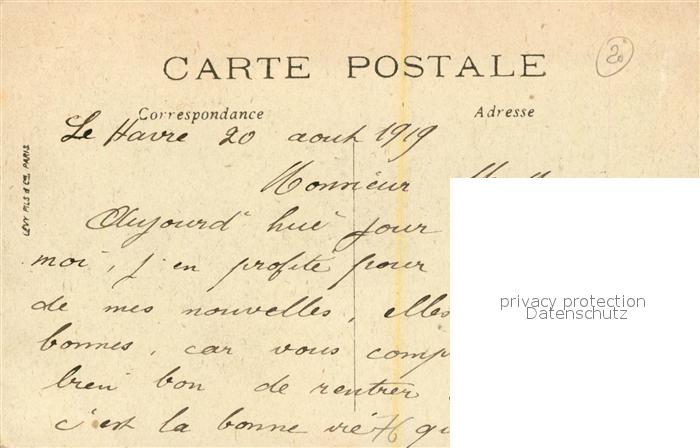 20
CARTE POSTALE
Correspondance
Adresse
Le Havre 20 aout 1919
Monsieur
Aujourd' hué jour
moi, j'en profite pour
de mes nouvelles, elles
bonnes, car vous comp
bien bon de rentrer
c'est la bonne vié qu
LEVY FILS & Cie PARIS
privacy protection
Datenschutz